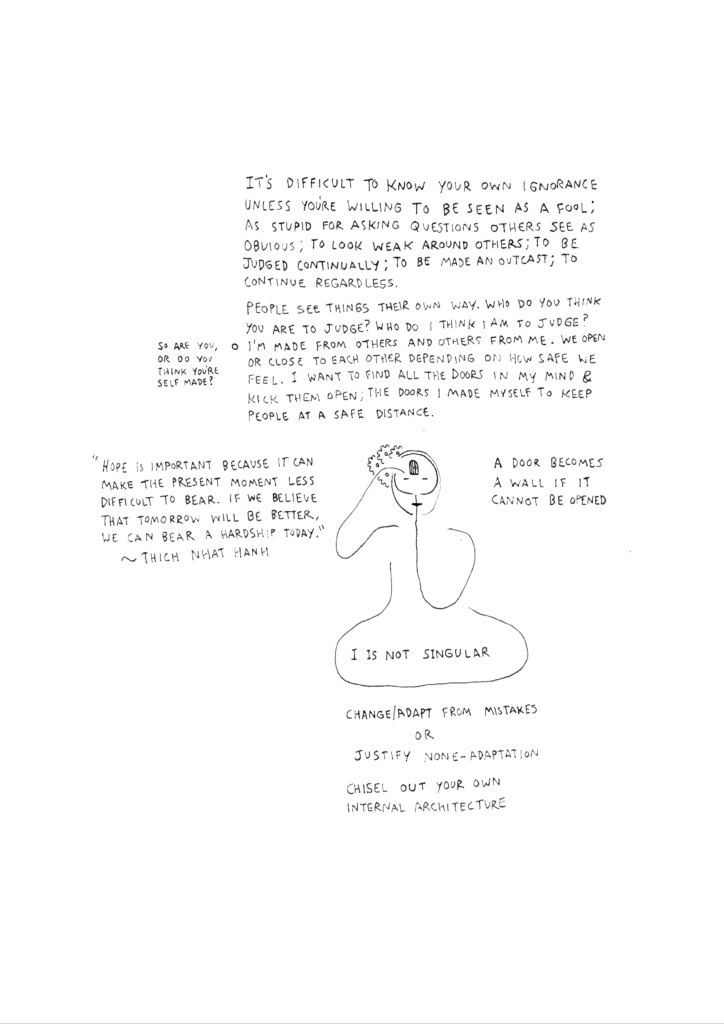 IT'S DIFFICULT TO KNOW YOUR OWN IGNORANCE
UNLESS YOU'RE WILLING TO BE SEEN AS A FOOL;
AS STUPID FOR ASKING QUESTIONS OTHERS SEE AS
OBVIOUS; TO LOOK WEAK AROUND OTHERS; TO BE
JUDGED CONTINUALLY; TO BE MADE AN OUTCAST; TO
CONTINUE REGARDLESS.
PEOPLE SEE THINGS THEIR OWN WAY. WHO DO YOU THINK
YOU ARE TO JUDGE? WHO DO I THINK I AM TO JUDGE?
I'M MADE FROM OTHERS AND OTHERS FROM ME. WE OPEN
OR CLOSE TO EACH OTHER DEPENDING ON HOW SAFE WE
FEEL. I WANT TO FIND ALL THE DOORS IN MY MIND &
KICK THEM OPEN; THE DOORS I MADE MYSELF TO KEEP
PEOPLE AT A SAFE DISTANCE.
SO ARE YOU,
OR DO YOU
THINK YOU'RE
SELF MADE?
"HOPE IS IMPORTANT BECAUSE IT CAN
MAKE THE PRESENT MOMENT LESS
DIFFICULT TO BEAR. IF WE BELIEVE
THAT TOMORROW WILL BE BETTER,
WE CAN BEAR A HARDSHIP TODAY."
~ THICH NHAT HANH
A DOOR BECOMES
A WALL IF IT
CANNOT BE OPENED
I IS NOT SINGULAR
CHANGE/ADAPT FROM MISTAKES
OR
JUSTIFY NONE-ADAPTATION
CHISEL OUT YOUR OWN
INTERNAL ARCHITECTURE